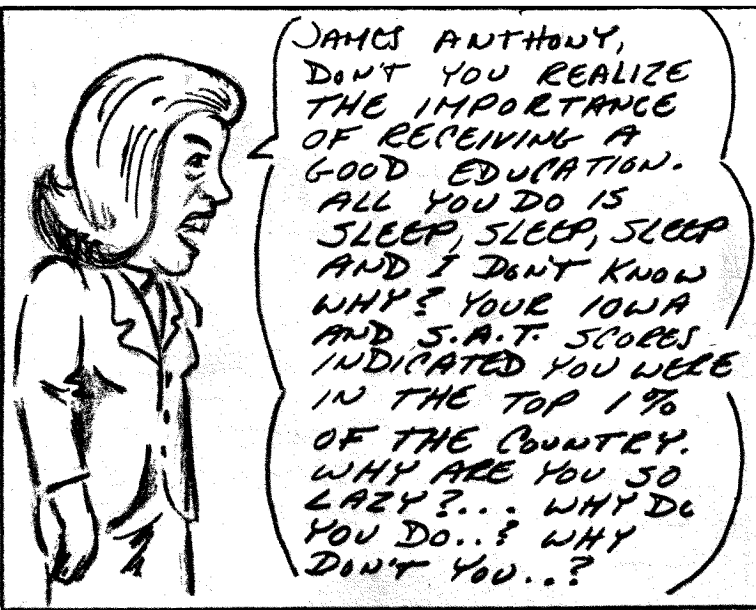 JAMES ANTHONY,
DON'T YOU REALIZE
THE IMPORTANCE
OF RECEIVING A
GOOD EDUCATION.
ALL YOU DO IS
SLEEP, SLEEP, SLEEP
AND I DON'T KNOW
WHY? YOUR IOWA
AND S.A.T. SCORES
INDICATED YOU WERE
IN THE TOP 1%
OF THE COUNTRY.
WHY ARE YOU SO
LAZY?... WHY DO
YOU DO..? WHY
DON'T YOU...?